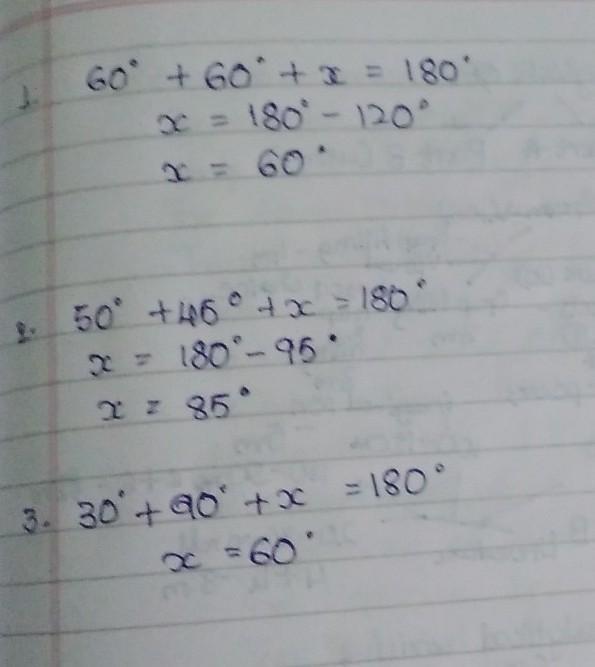 1. 60° + 60° + x = 180°
x = 180° - 120°
x = 60°
2. 50° + 45° + x = 180°
x = 180° - 95°
x = 85°
3. 30° + 90° + x = 180°
x = 60°